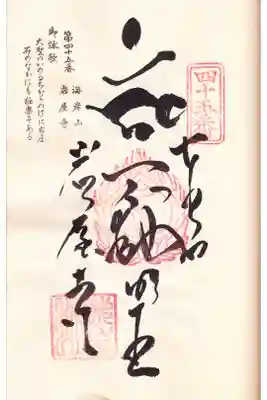 四十五番
不動明王
岩屋寺
第四十五番 海岸山 岩屋寺
御詠歌
大聖のいのるちからのげに岩屋
石のなかにも極楽ぞある